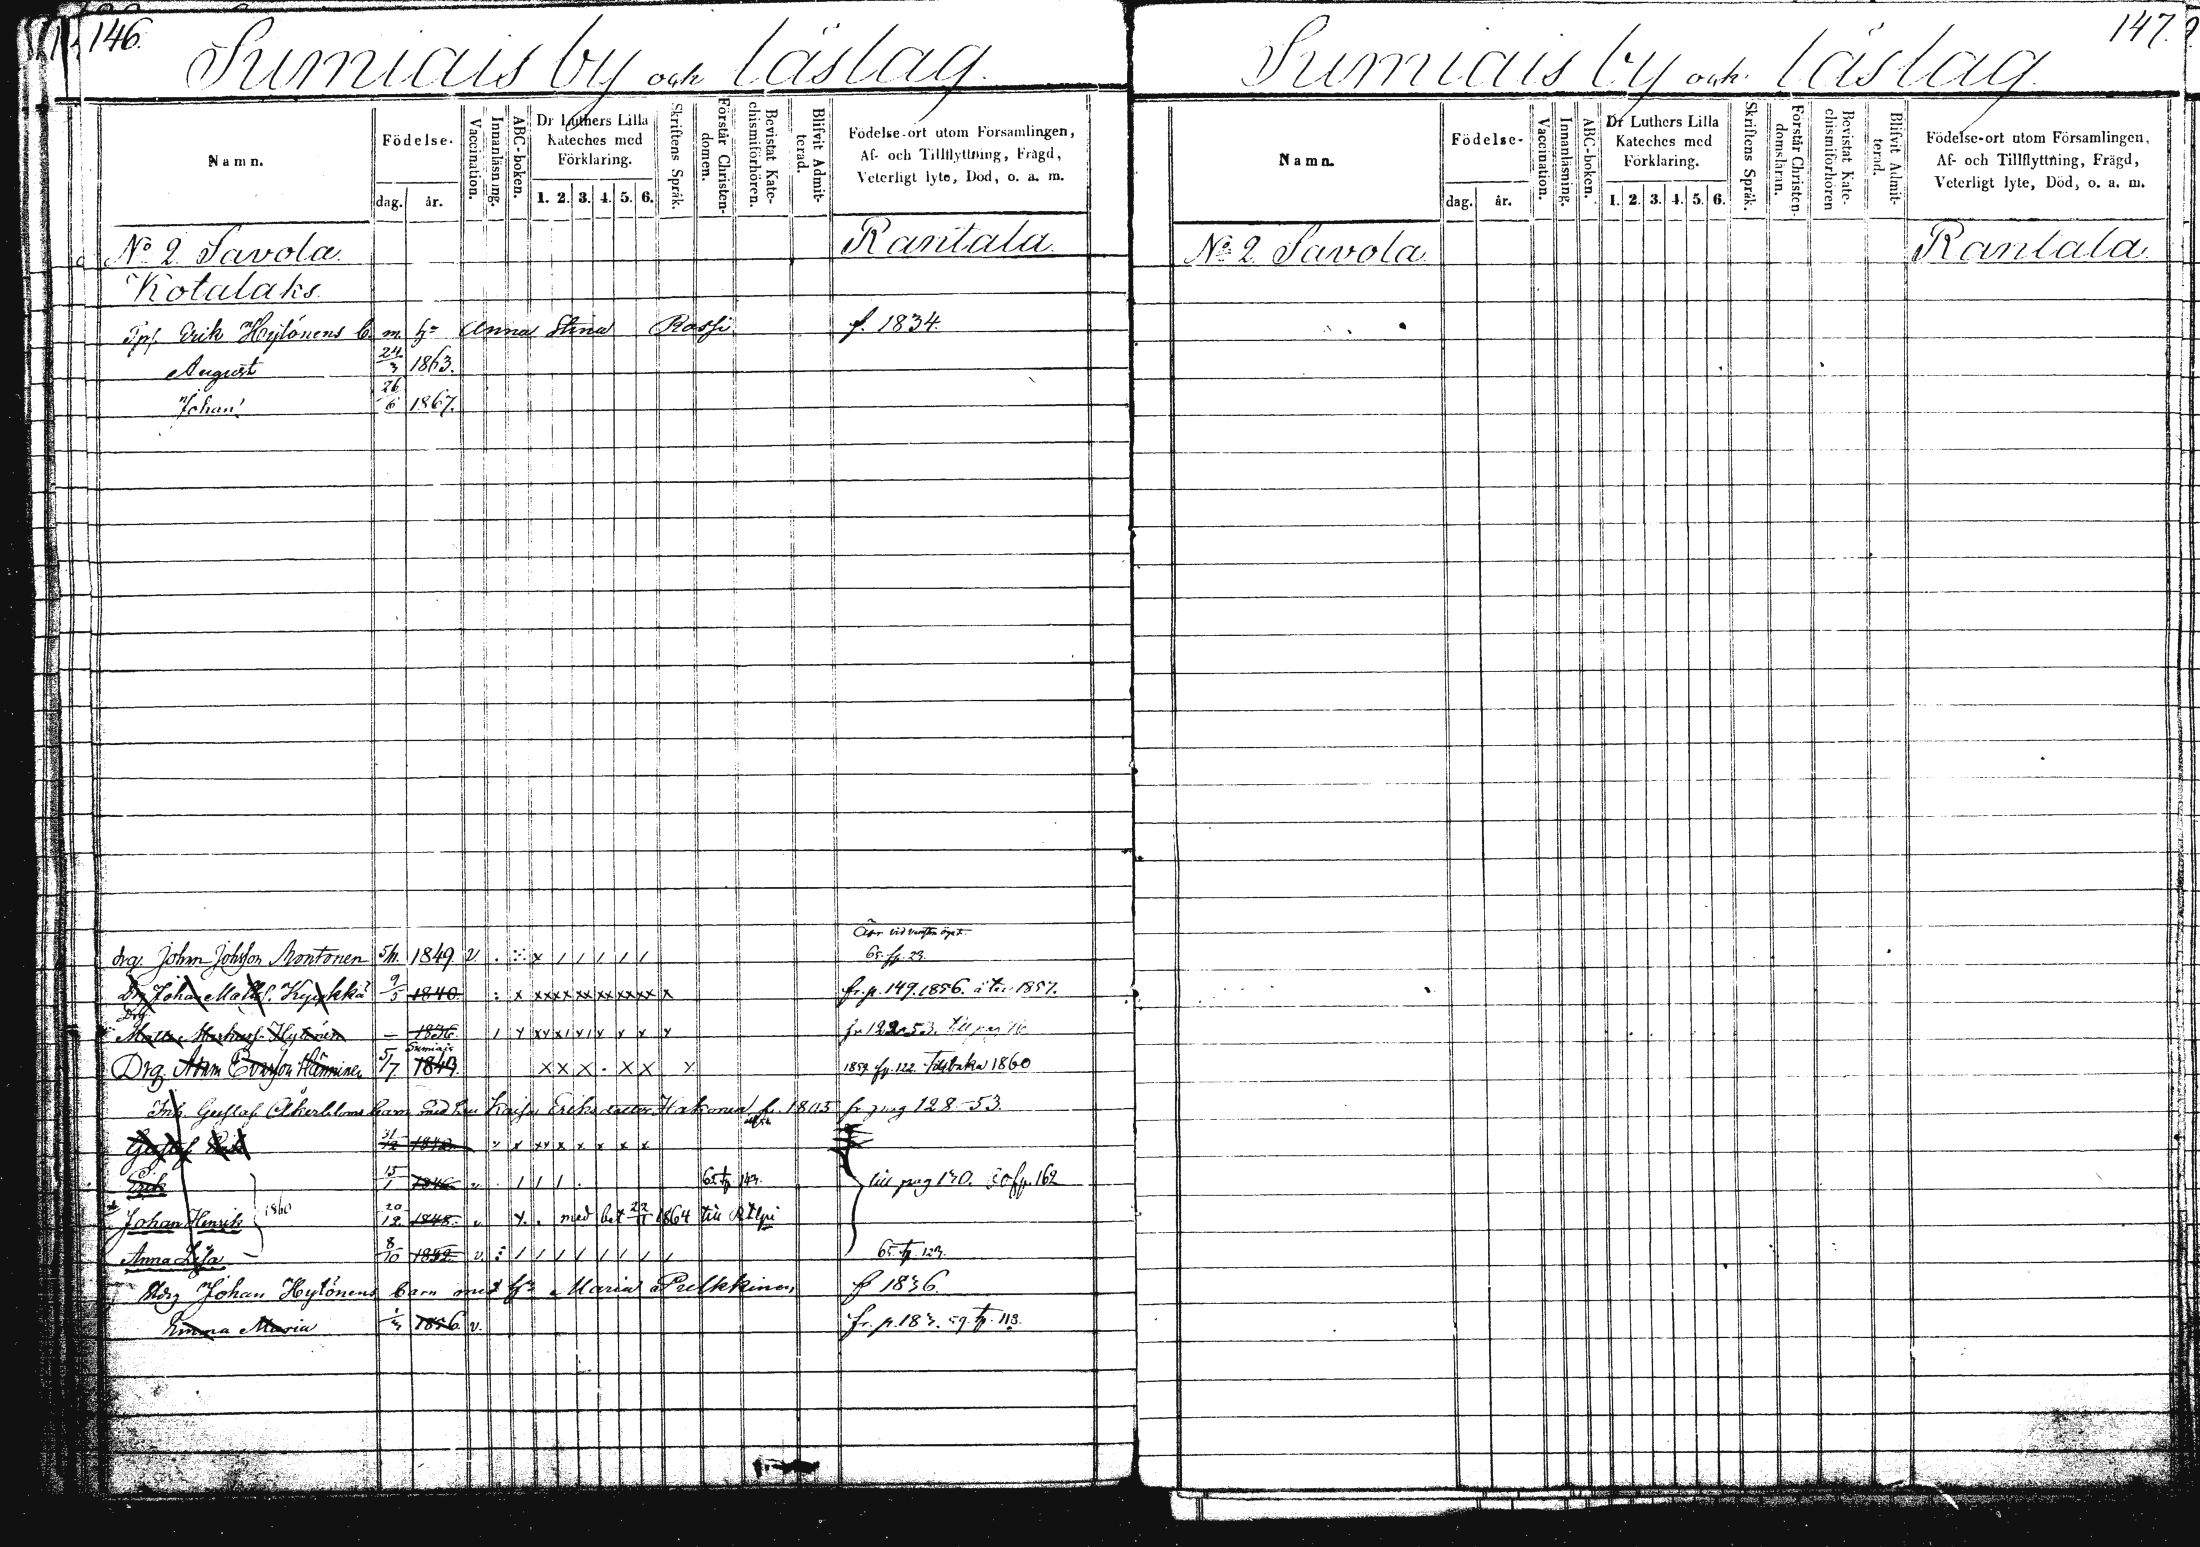 146.
Sumiais by och läslag.
Namn.
Födelse-
dag. år.
Vaccination.
Innanläsning.
ABC-boken.
Dr Luthers Lilla Kateches med Förklaring.
1. 2. 3. 4. 5. 6.
Skriftens Språk.
Förstår Christendomen.
Bevistat Katechismiförhören.
Blifvit Admitterad.
Födelse-ort utom Församlingen, Af- och Tillflyttning, Frägd, Veterligt lyte, Död, o. a. m.
No 2 Savola. Rantala.
Kotalaks.
Erik Hytönens b. m. h. Anna Stina f. 1834.
August 24/3 1863.
Johan 26/6 1867.
drg. Johan Montonen 1849 v
65. fp. 23.
Johan Matts. 9/5 1840 fr. p. 149. 1856. åter 1857.
Drg
Hytönen 1836 fr 122-53.
Sumiais
Drg. Adam Hänninen 5/7 1840 fp. 122 tillbaka 1860
Inh. Gustaf Åkerbloms barn med hu Kaisa Eriksdotter Hakonen f. 1805 fr pag 128-53.
Gustaf 31/12 1842
Erik 15/1 1846 v 62 fp 143. till pag 130. 60 fp. 162
Johan Henrik 1860 20/12 1848 v med bet 22/ 1864 till
Anna Lisa 8/10 1852 v. 65 fp. 123.
Johan Hytönens barn med h. Maria Pelkkinen f 1836.
Emma Maria 1856 v. fr. p. 183. 59 fp. 113.
147.
Sumiais by och läslag
Namn.
Födelse-
dag. år.
Vaccination.
Innanläsning.
ABC-boken.
Dr Luthers Lilla Kateches med Förklaring.
1. 2. 3. 4. 5. 6.
Skriftens Språk.
Förstår Christendomsläran.
Bevistat Katechismiförhören
Blifvit Admitterad.
Födelse-ort utom Församlingen, Af- och Tillflyttning, Frägd, Veterligt lyte, Död, o. a. m.
No 2 Savola. Rantala.